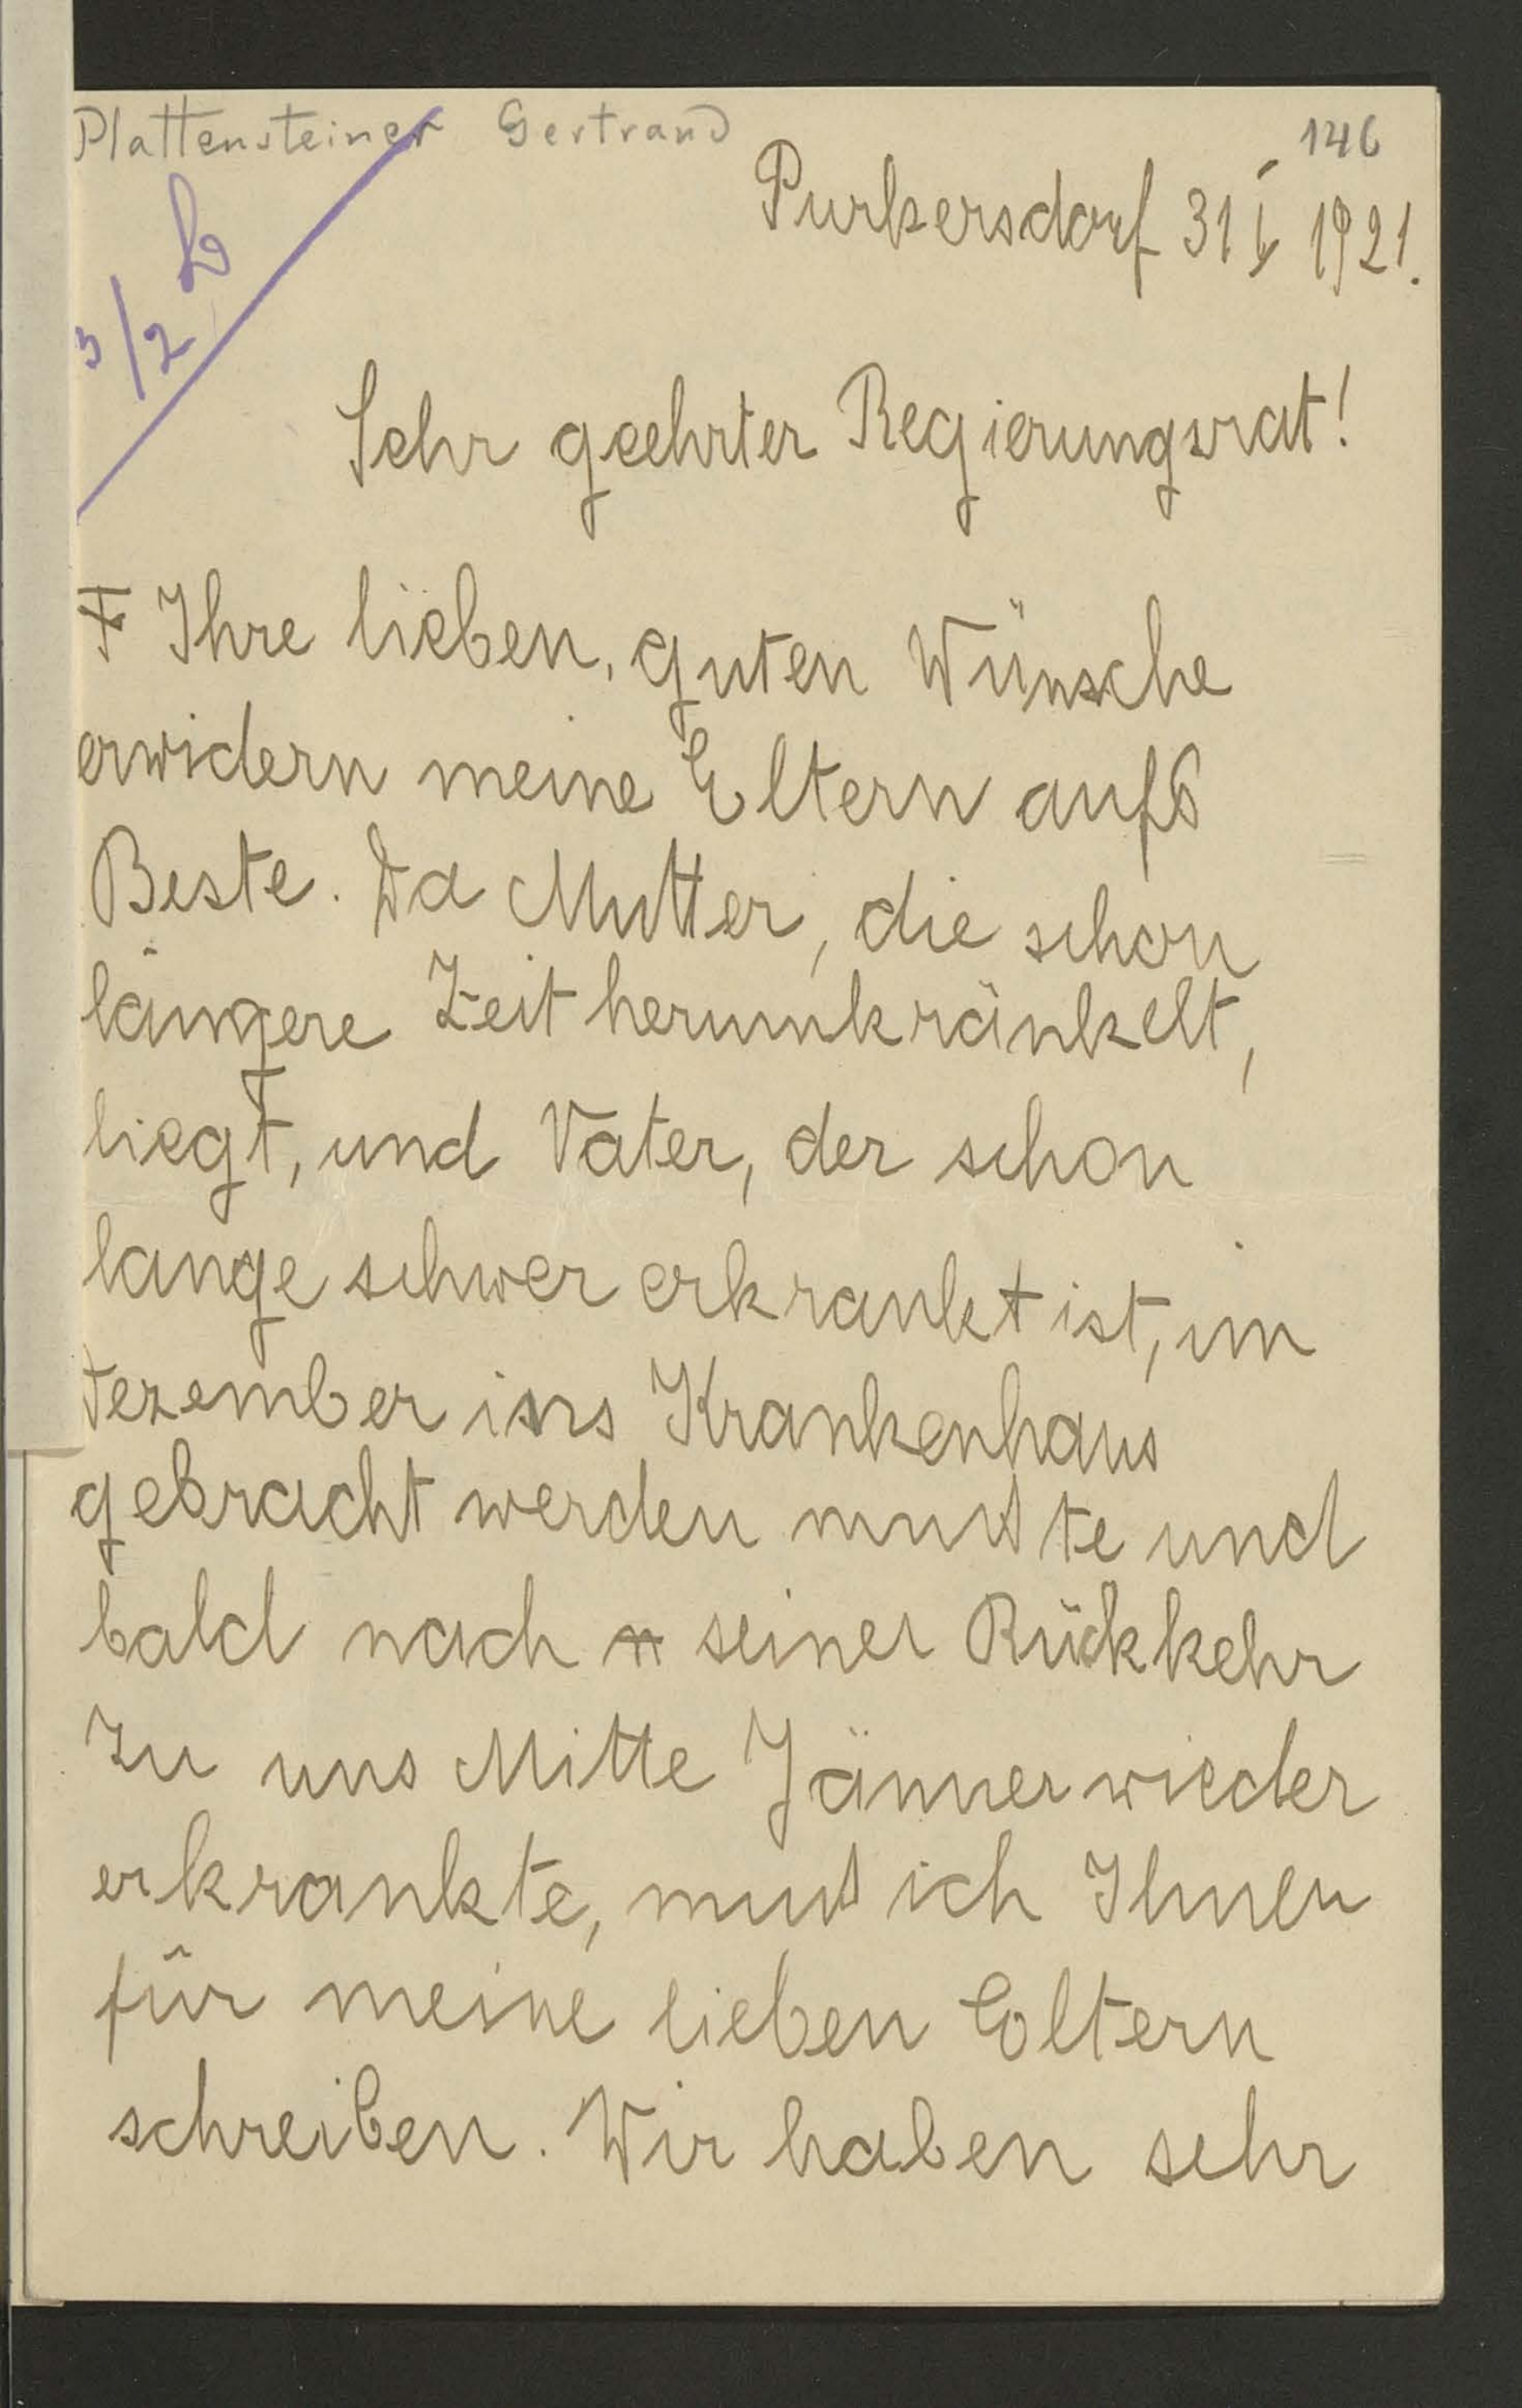 Plattensteiner Gertraud
146
Purkersdorf 31 I 1921.
3/2 b
Sehr geehrter Regierungsrat!
Ihre lieben, guten Wünsche
erwidern meine Eltern aufs
Beste. Da Mutter, die schon
längere Zeit herumkränkelt,
liegt, und Vater, der schon
lange schwer erkrankt ist, im
Dezember ins Krankenhaus
gebracht werden mußte und
bald nach seiner Rückkehr
zu uns Mitte Jänner wieder
erkrankte, muß ich Ihnen
für meine lieben Eltern
schreiben. Wir haben sehr